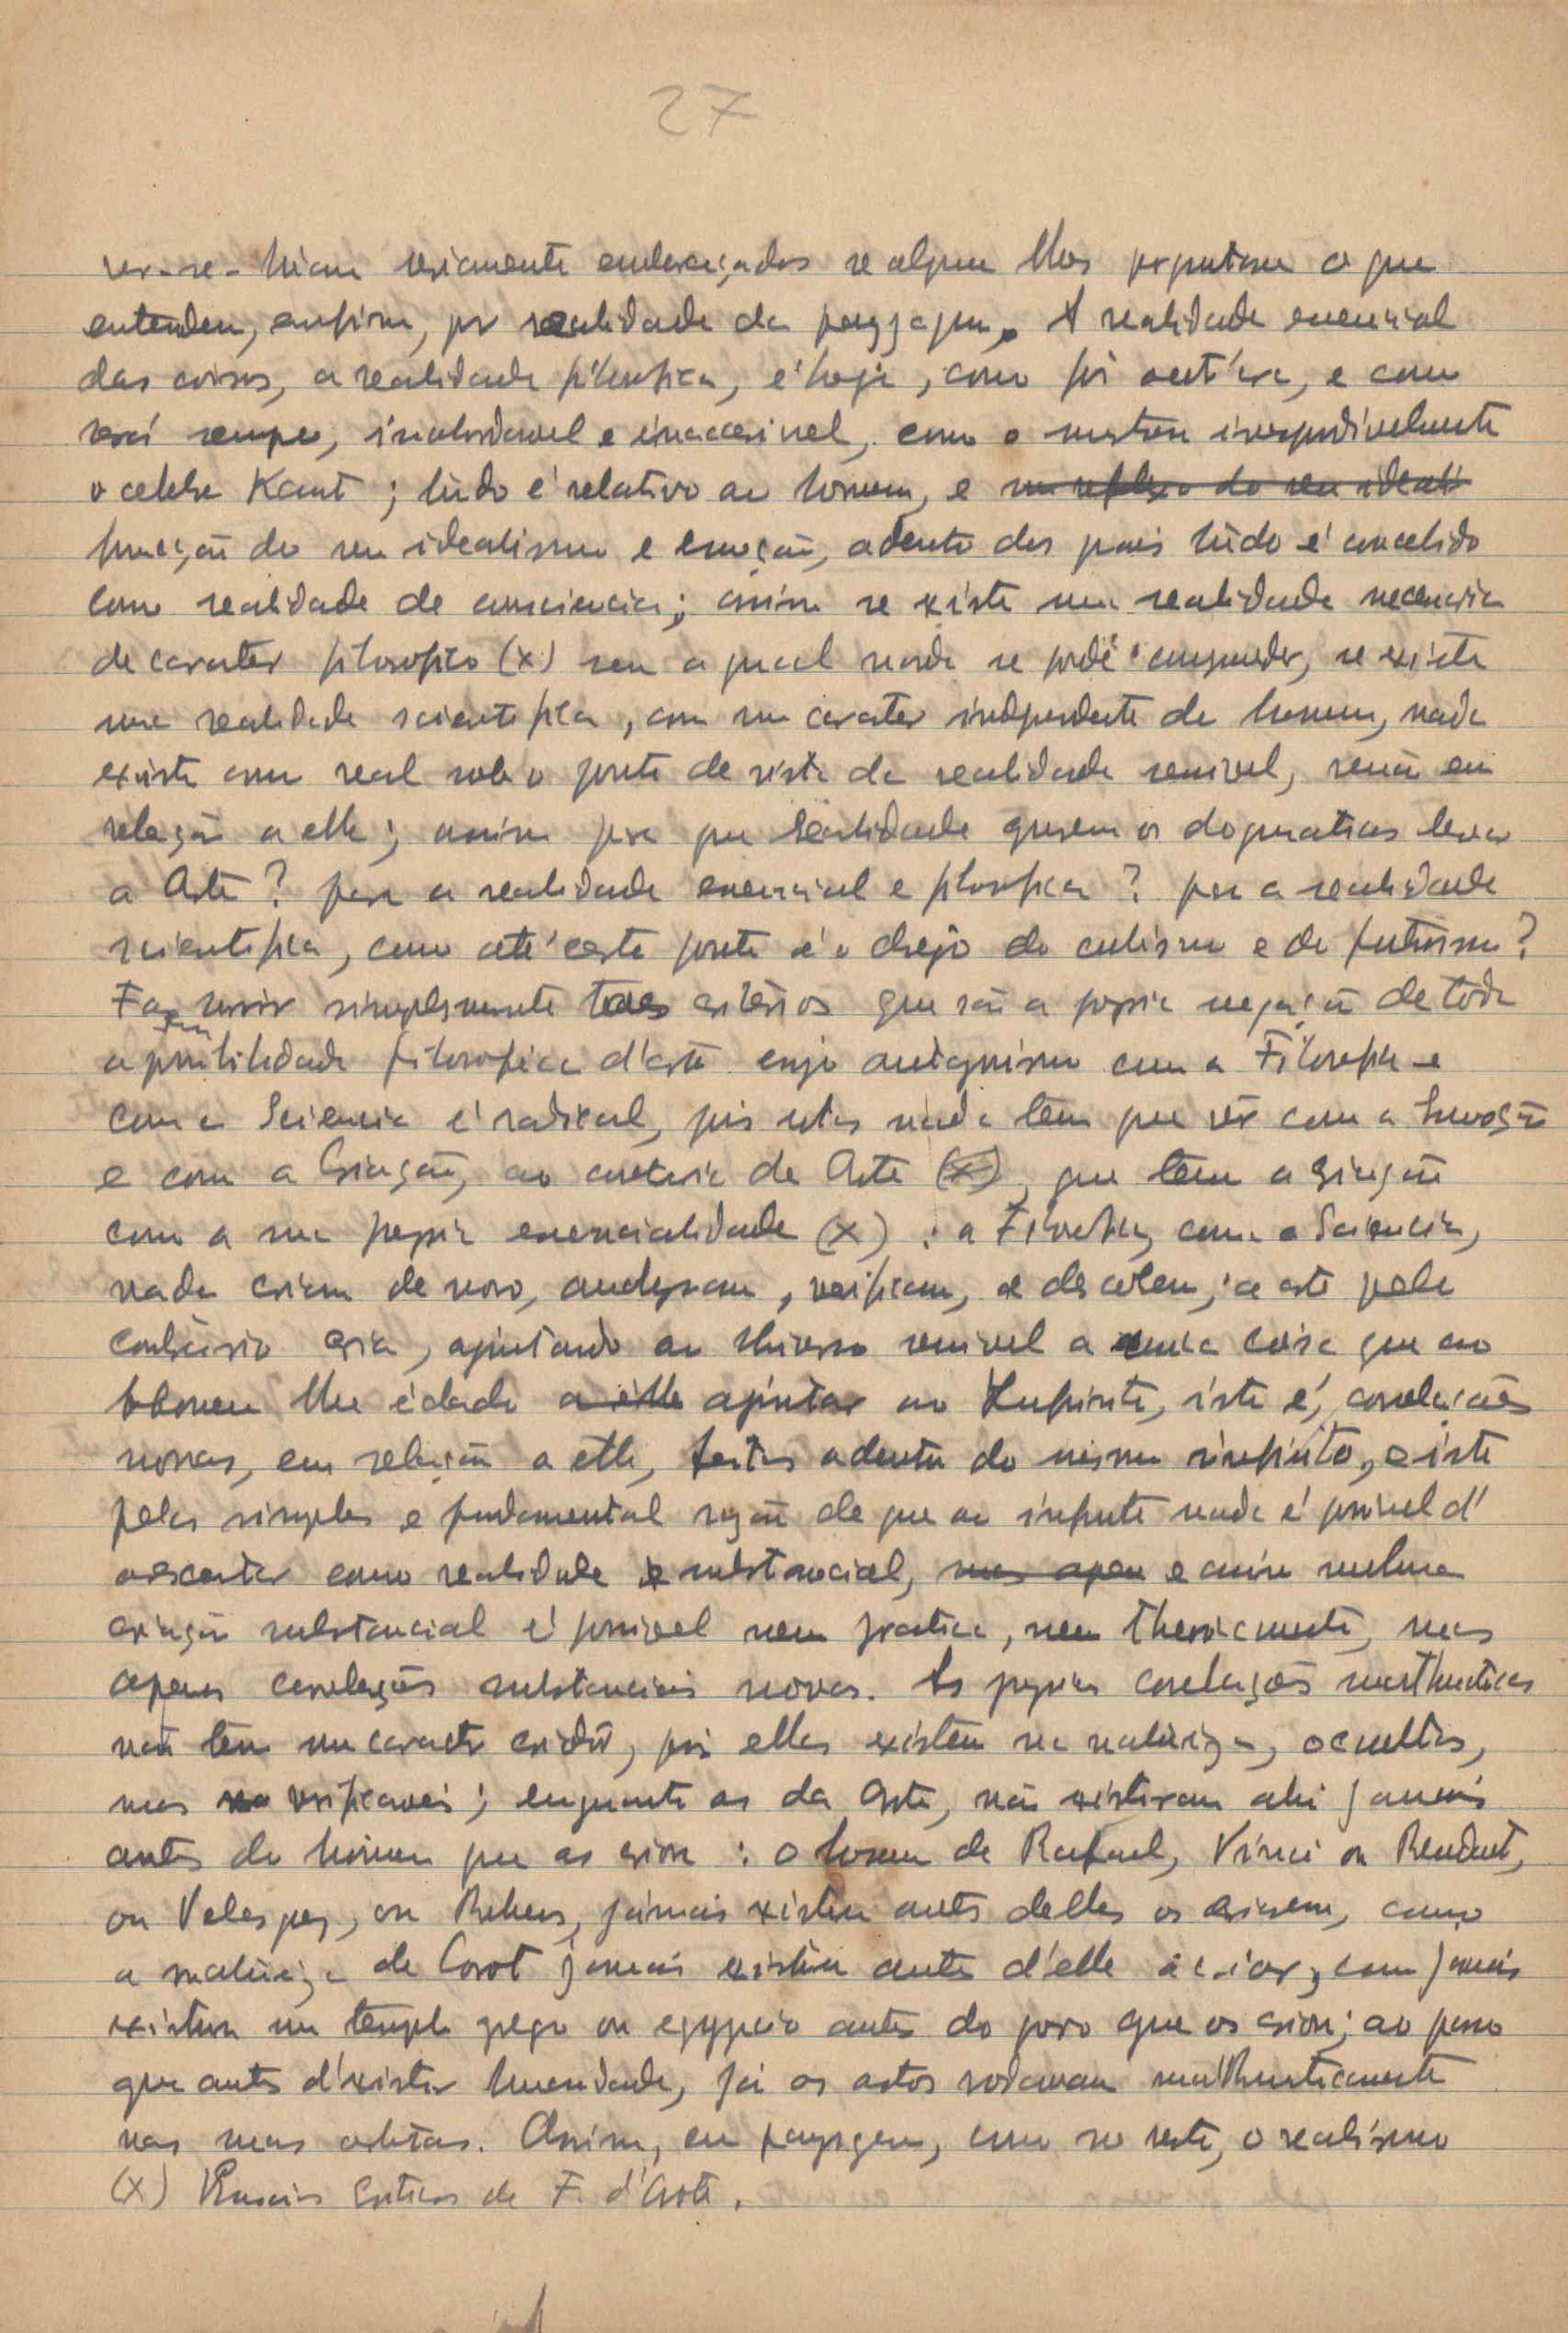 27
ver-se-hiam seriamente embaraçados se alguem lhes perguntasse o que
entendem, emfim, por realidade da paysagem. A realidade essencial
das coisas, a realidade filosofica, é hoje, como foi outr'ora, e como
será sempre, inabordavel e inaccessivel, como o mostrou irrespondivelmente
o celebre Kant; tudo é relativo ao homem, e um reflexo do seu ideali
funcção do seu idealismo e emoção, adentro dos quais tudo é concebido
como realidade de consciencia; assim se existe uma realidade necessaria
de carater filosofico (x) sem a qual nada se póde comprender, se existe
uma realidade scientifica, com um carater independente do homem, nada
existe como real sob o ponto de vista da realidade sensivel, senão em
relação a elle; assim para que realidade querem os dogmaticos levar
a Arte? para a realidade essencial e filosofica? para a realidade
scientifica, como até certo ponto é o desejo do cubismo e do futurismo?
Fazem sorrir simplesmente taes critérios que são a propria negação de toda
a possibilidade filosofica d'arte cujo antagonismo com a Filosofia e
com a Sciencia é radical, pois estas nada têm que vêr com a Emoção
e com a Criação, ao contrario da Arte (x), que tem a Criação
como a sua propria essencialidade (x): a Filosofia, como a Sciencia,
nada criam de novo, analysam, verificam, e descobrem; a arte pelo
contrário cria, ajuntando ao Universo sensivel a unica coisa que ao
homem lhe é dado a elle ajuntar ao Infinito, isto é, correlações
novas, em relação a elle, feitas adentro do mesmo infinito, e isto
pela simples e fundamental rasão de que ao infinito nada é possivel d'
acrescentar como realidade substancial, mas apen e assim nenhuma
criação substancial é possivel nem pratica, nem theoricamente, mas
apenas correlações substanciais novas. As proprias correlações mathematicas
não têm um caracter criadôr, pois ellas existem na natureza, occultas,
mas verificaveis; enquanto as da Arte, não existiram ahi jamais
antes do homem que as criou: o homem de Rafael, Vinci ou Rembrandt,
ou Velasquez, ou Rubens, jámais existiu antes delles os criarem, como
a natureza de Corot jamais existiu antes d'elle a criar, como jamais
existiu um templo grego ou egypcio antes do povo que os criou; ao passo
que antes d'existir humanidade, já os astros rodavam mathematicamente
nas suas orbitas. Assim, em paysagem, como no resto, o realismo
(x) Ensaios Criticos de F. d'Arte.